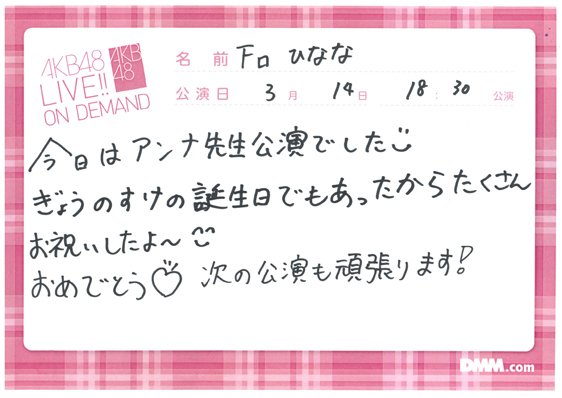 AKB48
LIVE!!
ON DEMAND
AKB
48
名 前 下口 ひなな
公演日 3月 14日 18:30 公演
今日はアンナ先生公演でした
ぎょうのすけの誕生日でもあったからたくさん
お祝いしたよ〜
おめでとう♡ 次の公演も頑張ります!
DMM.com